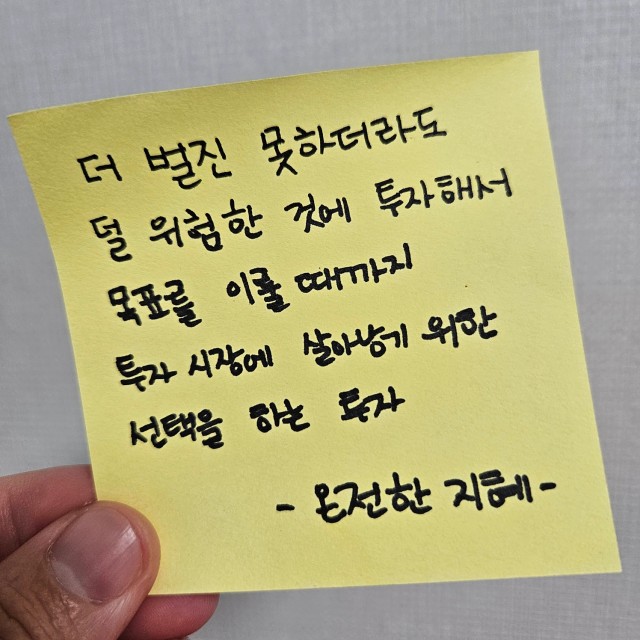 더 벌진 못하더라도
덜 위험한 것에 투자해서
목표를 이룰 때까지
투자 시장에 살아남기 위한
선택을 하는 투자
- 온전한 지혜 -